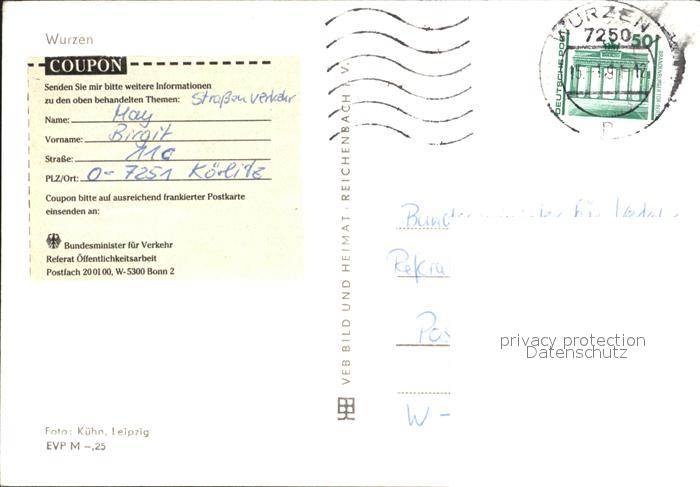 Wurzen
COUPON
Senden Sie mir bitte weitere Informationen
zu den oben behandelten Themen: Straßenverkehr
Name: May
Vorname: Birgit
Straße: 11c
PLZ/Ort: O-7251 Körlitz
Coupon bitte auf ausreichend frankierter Postkarte
einsenden an:
Bundesminister für Verkehr
Referat Öffentlichkeitsarbeit
Postfach 20 01 00, W-5300 Bonn 2
Foto: Kühn, Leipzig
EVP M -,25
VEB BILD UND HEIMAT · REICHENBACH I. V.
WURZEN
7250
50
DEUTSCHE POST
privacy protection
Datenschutz
W-